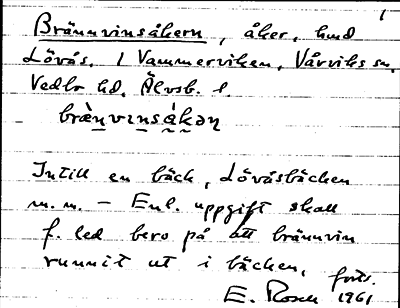 1
Brännvinsåkern, åker, hmd
Lövås, 1 Vammerviken, Vårviks sn,
Vedbo hd, Älvsb. l.
brὰn̲vin̲såkən̲
Intill en bäck, Lövåsbäcken
m.m. – Enl. uppgift skall
f. led bero på att brännvin
runnit ut i bäcken,
forts.
E. Rosen 1961